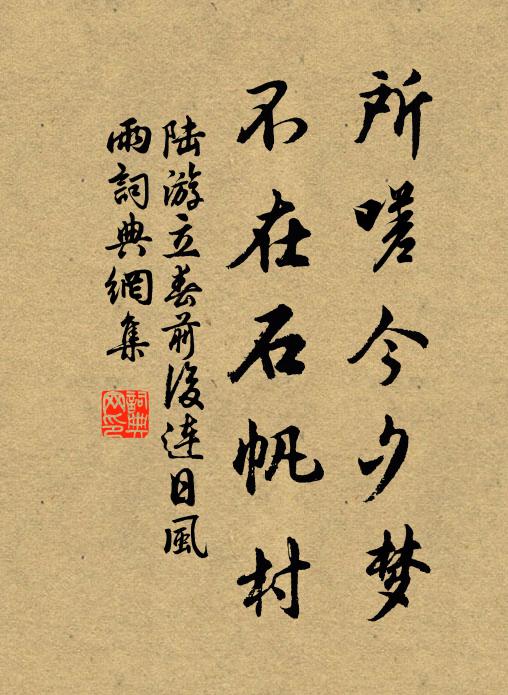 所嗟今夕梦
不在石帆村
陆游立春前後连日風
雨詞典網集
詞典
网印